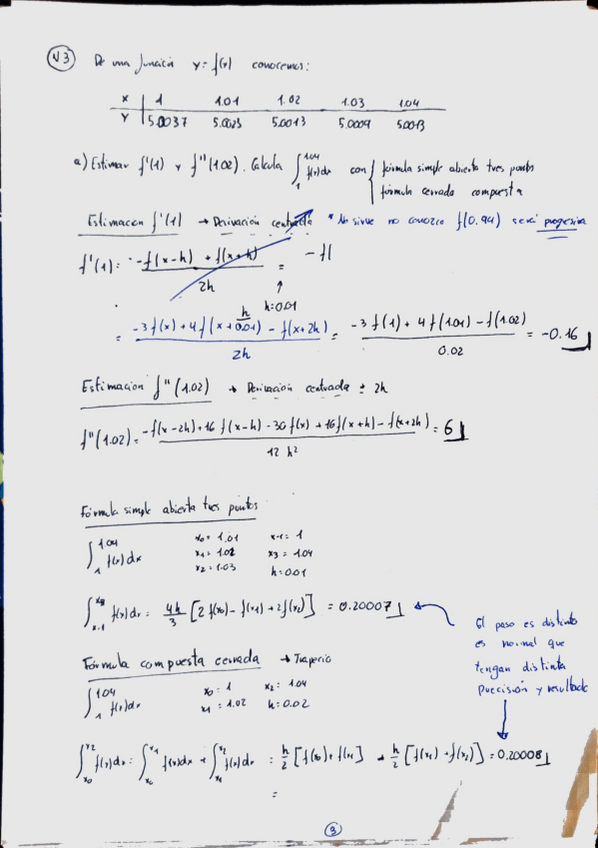 N3 De una función y = f(x) conocemos:
X 1 1.01 1.02 1.03 1.04
Y 5.0037 5.0023 5.0013 5.0009 5.0013
a) Estimar f'(1) y f''(1.02). Calcula ∫₁^1.04 f(x)dx con { fórmula simple abierta tres puntos
fórmula cerrada compuesta
Estimacion f'(1) → Derivación centrada * No sirve no conozco f(0.99) será progresiva
f'(1) = -f(x-h) + f(x+h) / 2h = -f(
↑
h=0.01
= -3f(x) + 4f(x+h) - f(x+2h) / 2h = -3f(1) + 4f(1.01) - f(1.02) / 0.02 = -0.16
Estimacion f''(1.02) → Derivación centrada ± 2h
f''(1.02) = -f(x-2h) + 16f(x-h) - 30f(x) + 16f(x+h) - f(x+2h) / 12h² = 6
Fórmula simple abierta tres puntos
∫₁^1.04 f(x)dx x₀ = 1.01 x₋₁ = 1
x₁ = 1.02 x₃ = 1.04
x₂ = 1.03 h = 0.01
∫x₋₁^x₃ f(x)dx = 4h/3 [2f(x₀) - f(x₁) + 2f(x₂)] = 0.20007
El paso es distinto
es normal que
tengan distinta
precisión y resultado
Fórmula compuesta cerrada → Trapecio
∫₁^1.04 f(x)dx x₀ = 1 x₂ = 1.04
x₁ = 1.02 h = 0.02
∫x₀^x₂ f(x)dx = ∫x₀^x₁ f(x)dx + ∫x₁^x₂ f(x)dx = h/2 [f(x₀) + f(x₁)] + h/2 [f(x₁) + f(x₂)] = 0.20008
=
3